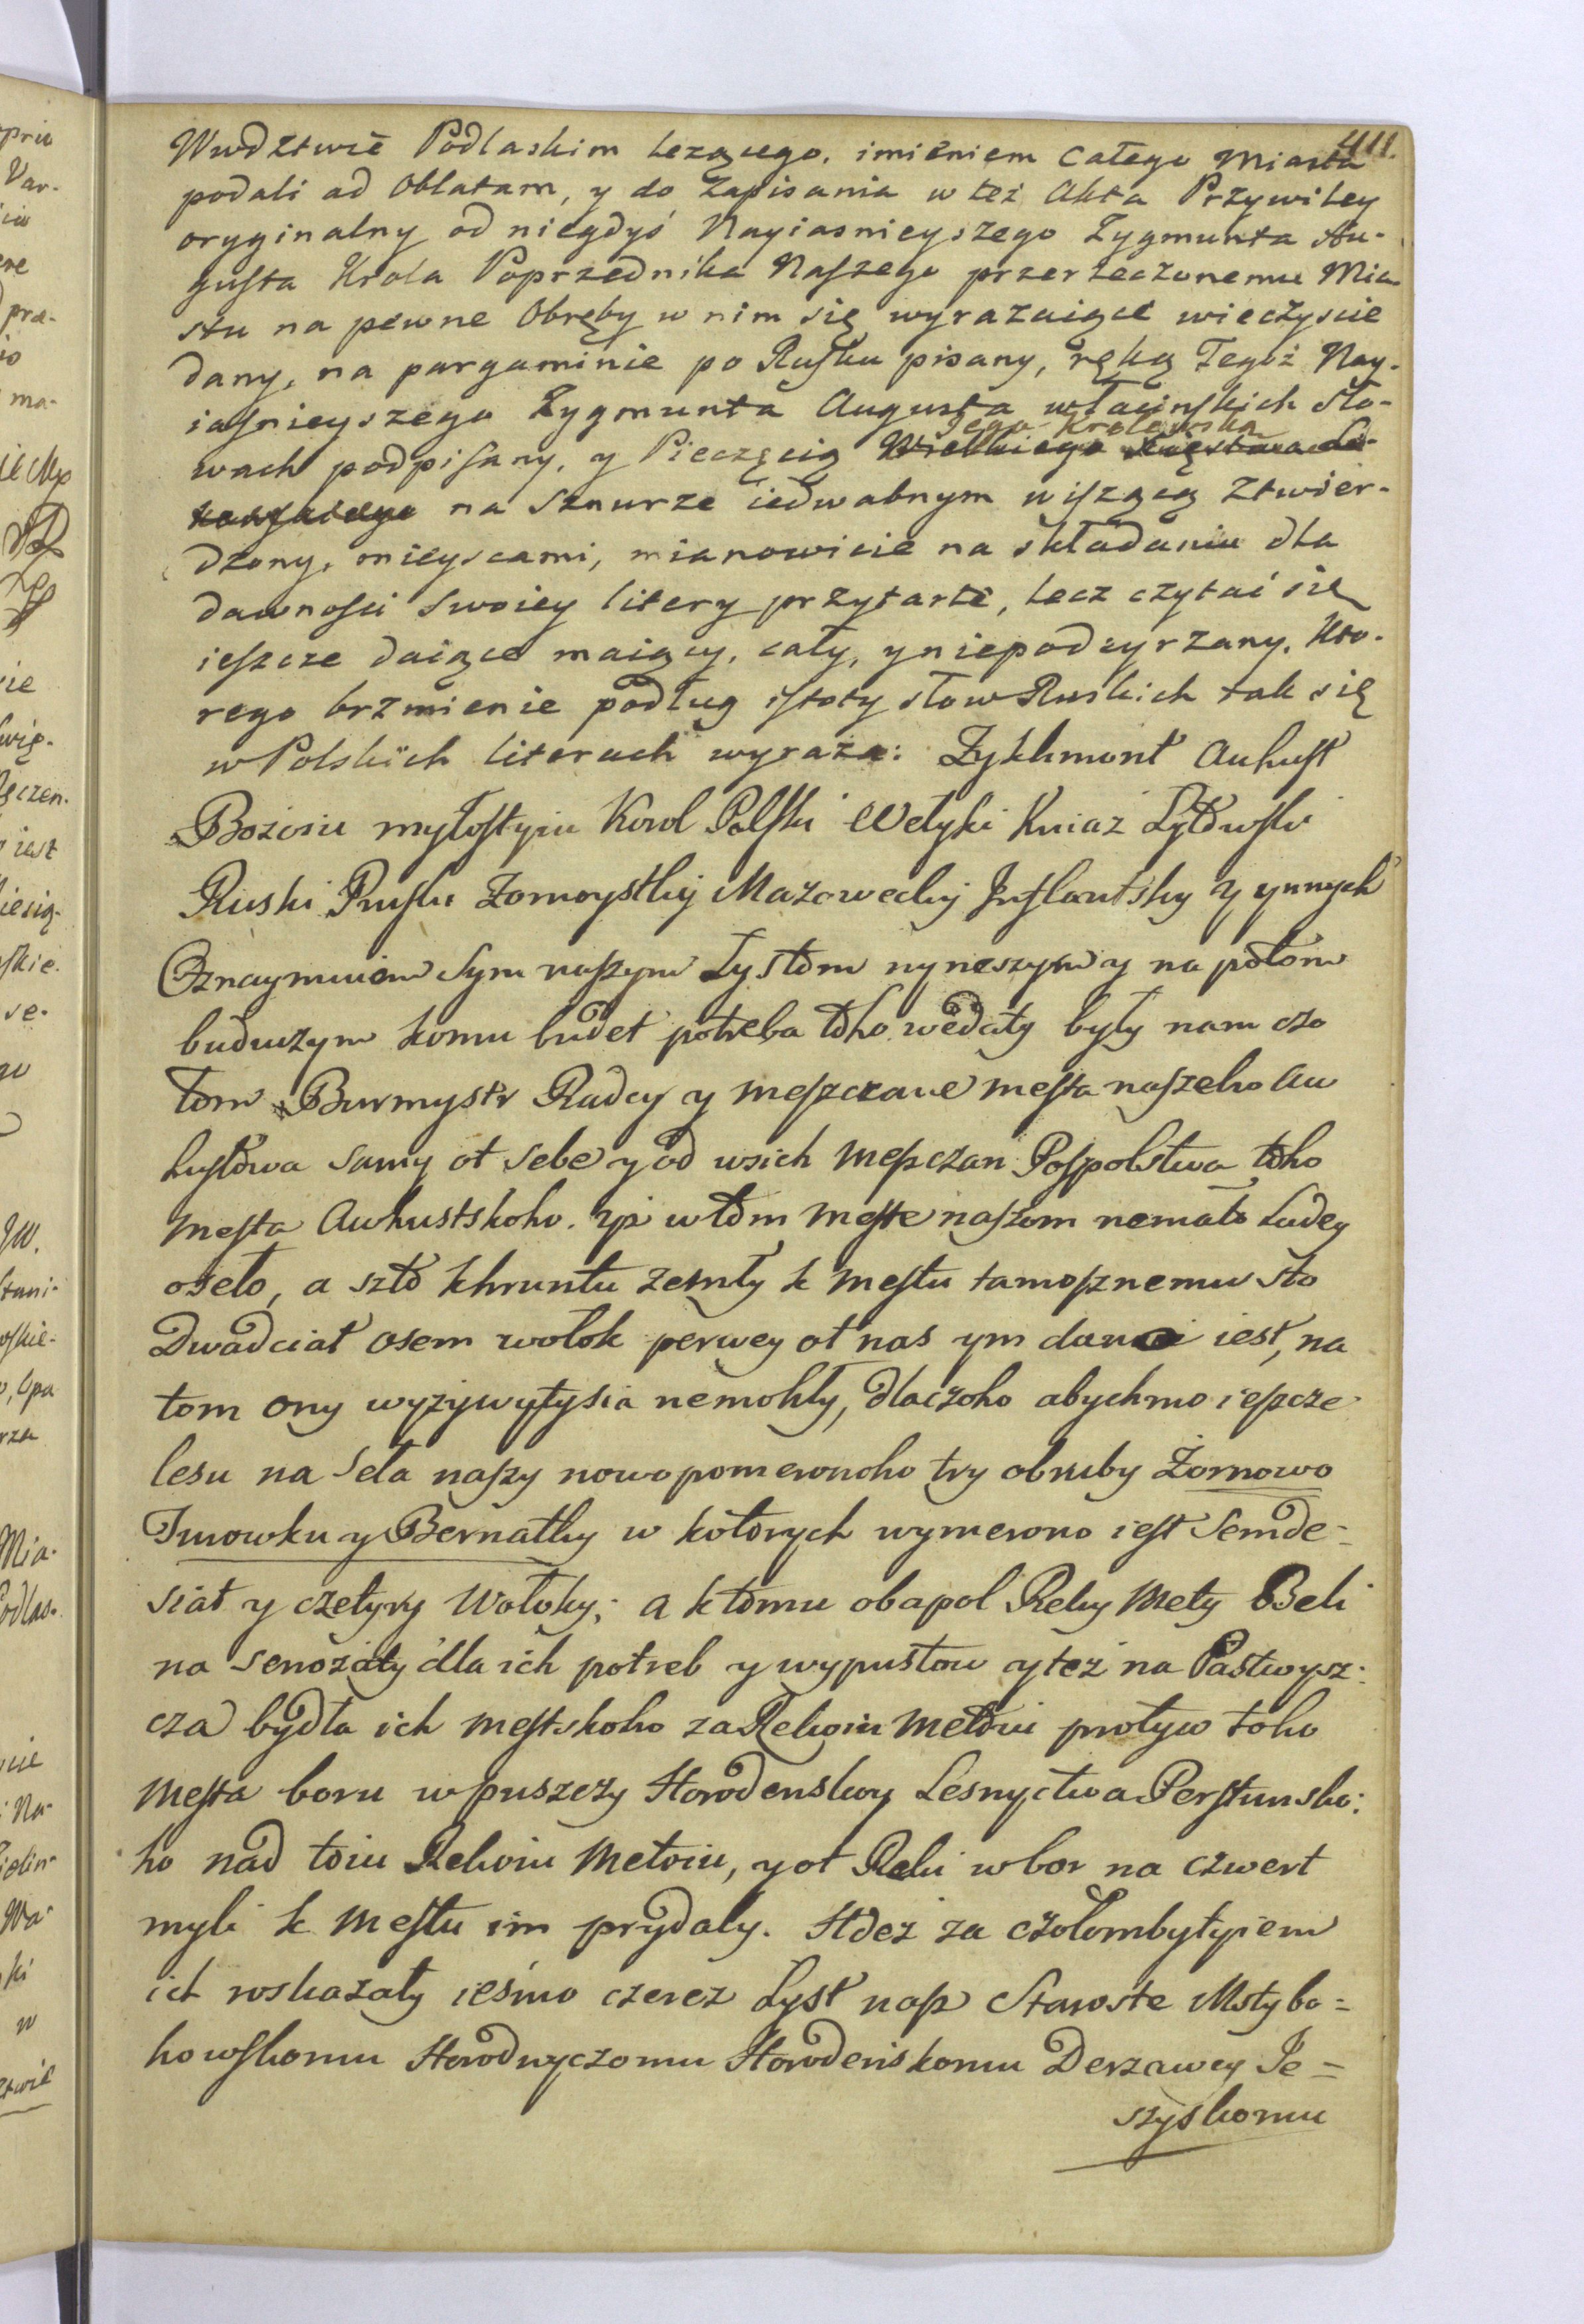 411.
Wwdztwie Podlaskim leżącego, imieniem całego Miasta
podali ad Oblatam, y do Zapisania w też Akta Przywiley
oryginalny od niegdyś Nayiasnieyszego Zygmunta Au-
gusta Krola Poprzednika Naszego przerzeczonemu Mia-
stu na pewne Obręby w nim się wyrazaiące wieczyscie
dany, na pargaminie po Rusku pisany, ręką Tegoż Nay-
iasnieyszego Zygmunta Augusta w łacinskich sło-
wach podpisany, y Pieczęcią Jego Krolewską
na sznurze iedwabnym wiszącą Ztwier-
dzony, mieyscami, mianowicie na składaniu dla
dawnosci swoiey litery przytarte, lecz czytać się
ieszcze daiące maiący, cały, y niepodeyrzany. Kto-
rego brzmienie podług istoty słow Ruskich tak się
w Polskich literach wyraża: Zykhmont Auhust
Bożoiu myłostyiu Korol Polski Wełyki Kniaz Lytowski
Ruski Pruski Żomoytskiy Mazowecky Inflantsky y ynnych
Oznaymuiem sym naszym Lystom nyneszym y na potom
buduczym komu budet potreba toho wedaty były nam czo
łom Burmystr Radcy y meszczane mesta naszeho Au
hustowa samy ot sebe y od wsich meszczan Pospolstwa toho
mesta Auhustskoho. Yż w tom meste naszom nemało Ludey
oseło, a szto khruntu zemły k mestu tamosznemu sto
Dwadciat osem wołok perwey ot nas ym dano iest, na
tom ony wyżywytysia nemohły, dlaczoho abychmo ieszcze
lesu na seła naszy nowopomeronoho try obruby Żornowo
Turowku y Bernatky w kotorych wymerono iest semde-
siat y czetyry Wołoky; a ktomu obapol Reky Mety Beli
na senożaty dla ich potreb y wypustow y też na Pastwysz-
cza bydła ich mestskoho za Rekoiu Metoiu protyw toho
mesta boru w puszczy Horodenskoy Lesnyctwa Perstunsko-
ho nad toiu Rekoiu Metoiu, y ot Reki w bor na czwert
myli k mestu im prydaly. Hdez za czołombytyiem
ich roskazały ieśmo czerez Lyst nasz Staroste Mstybo-
howskomu Horodnyczomu Horodenskomu Derzawcy Je-
szyskomu